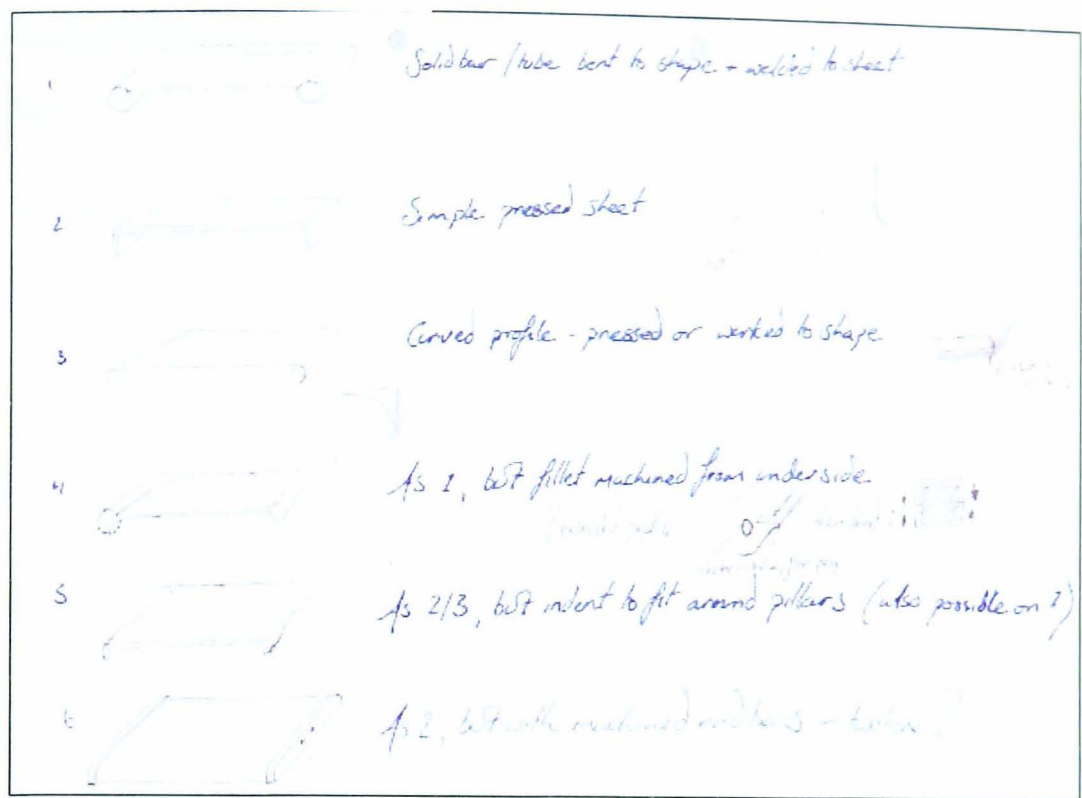 1 Solid bar / tube bent to shape + welded to sheet
2 Simple pressed sheet
3 Curved profile - pressed or worked to shape
4 As 1, but fillet machined from underside
5 As 2/3, but indent to fit around pillars (also possible on 1)
6 As 2, but with machined